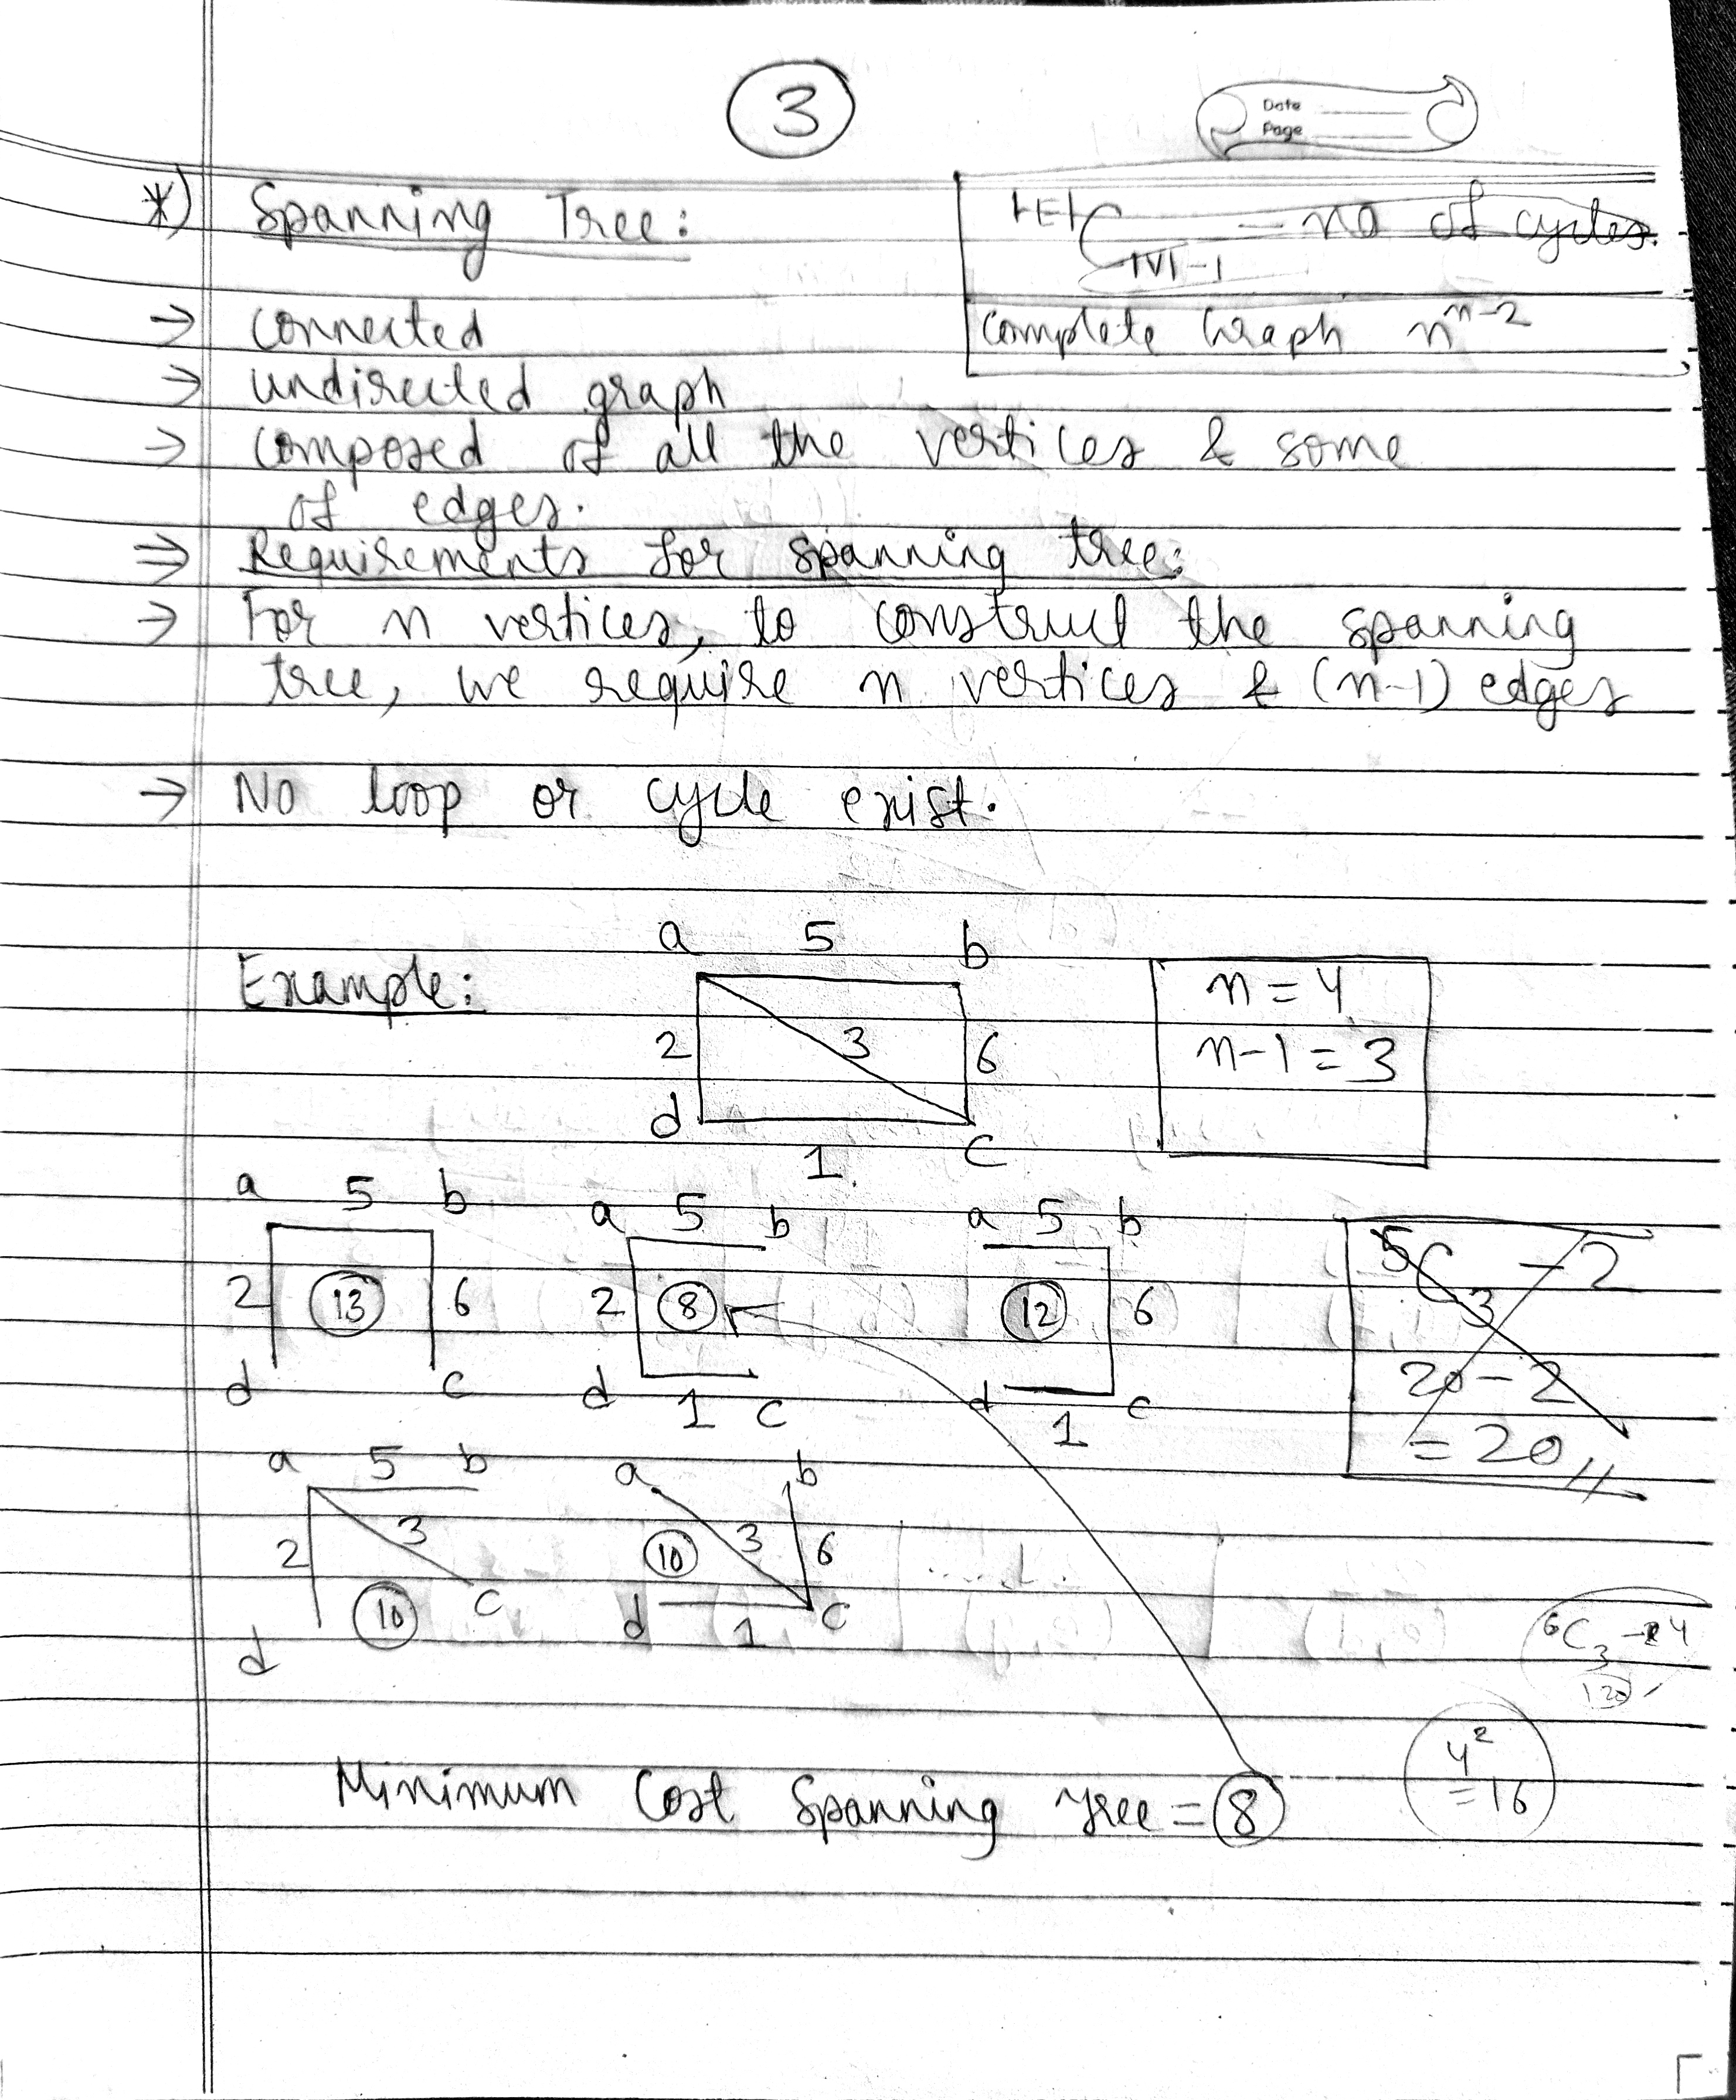 3
Date
Page
*) Spanning Tree:
|E|C|V|-1 - no of cycles.
Complete Graph n^n-2
→ connected
→ undirected graph
→ composed of all the vertices & some
of edges.
⇒ Requirements for spanning tree:
→ For n vertices, to construct the spanning
tree, we require n vertices & (n-1) edges
→ No loop or cycle exist.
Example:
a 5 b
2 3 6
d 1 c
n = 4
n-1 = 3
a 5 b
2 13 6
d c
a 5 b
2 8
d 1 c
a 5 b
12 6
d 1 c
5C3 - 2
20 - 2
= 20 //
a 5 b
2 3
d 10 c
a b
10 3 6
d 1 c
6C3 - 4
4² = 16
Minimum Cost Spanning Tree = 8